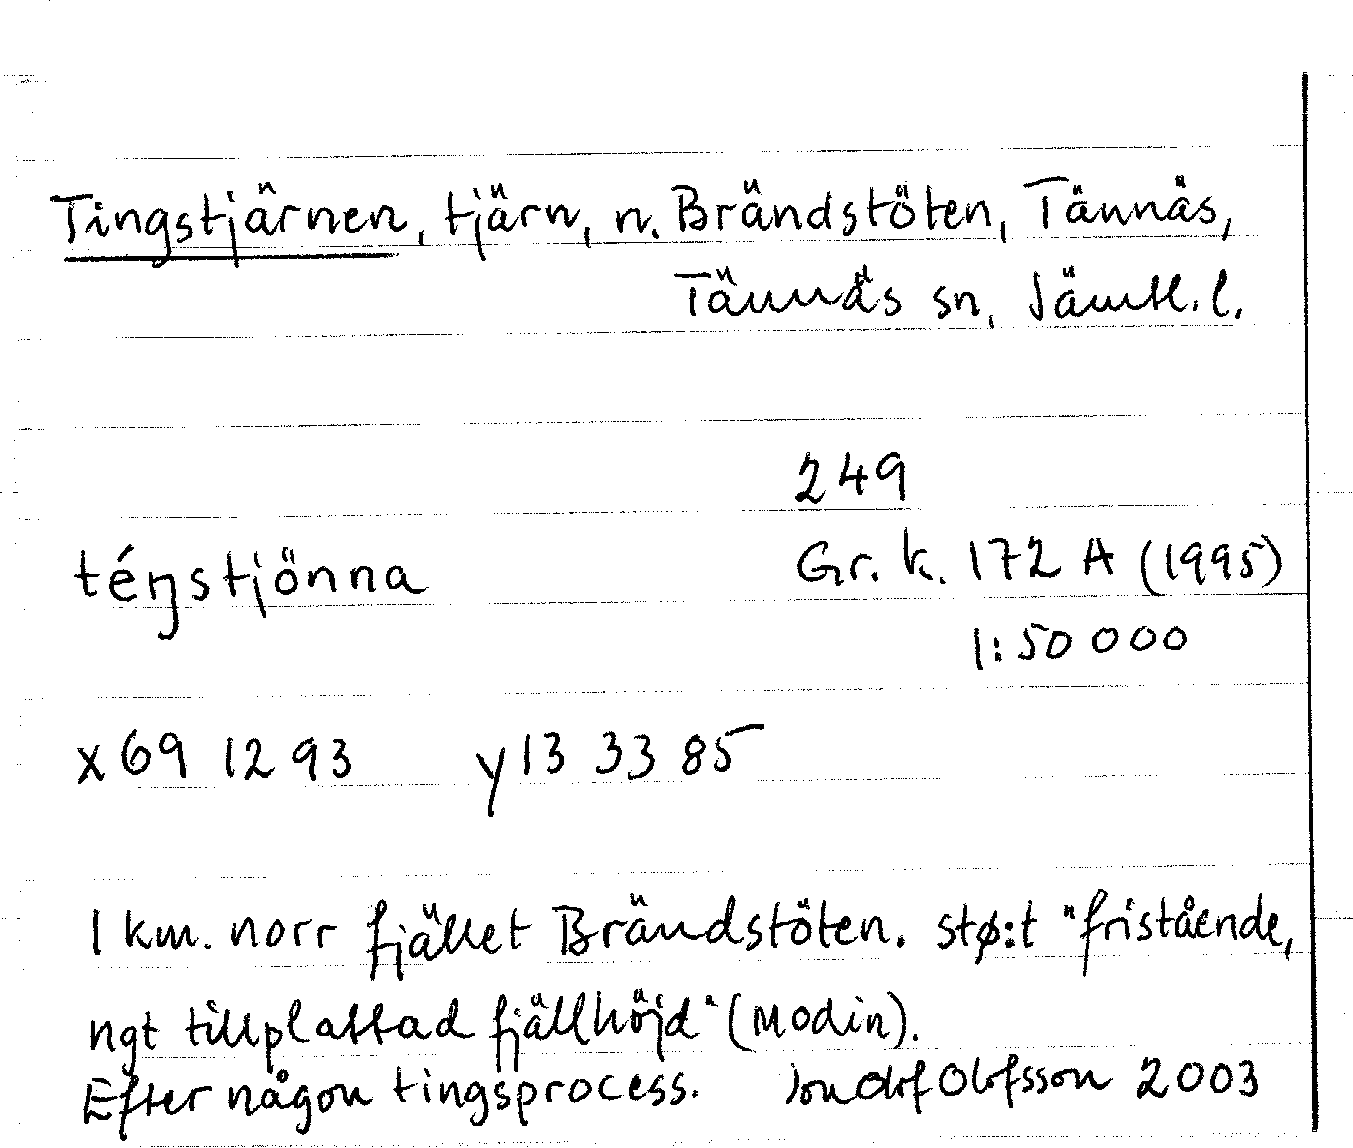 Tingstjärnen, tjärn, n. Brändstöten, Tännäs,
Tännäs sn, Jämtl. l.
249
téŋstjönna
Gr. k. 172 A (1995)
1:50 000
x 69 12 93 y 13 33 85
1 km. norr fjället Brändstöten. stø:t "fristående,
ngt tillplattad fjällhöjd" (Modin).
Efter någon tingsprocess. Jon Olof Olofsson 2003